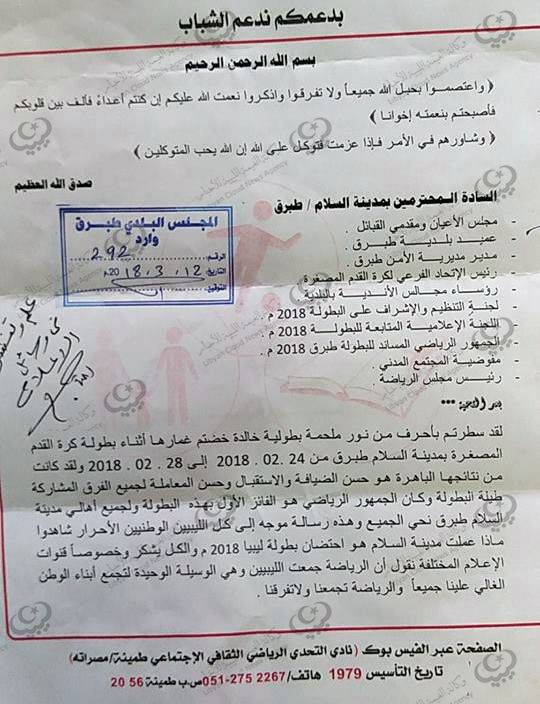 بدعمكم ندعم الشباب
بسم الله الرحمن الرحيم
( واعتصموا بحبل الله جميعاً ولا تفرقوا واذكروا نعمت الله عليكم إن كنتم أعداءً فألف بين قلوبكم
فأصبحتم بنعمته إخوانا )
( وشاورهم في الأمر فإذا عزمت فتوكل على الله إن الله يحب المتوكلين )
صدق الله العظيم
السادة المحترمين بمدينة السلام / طبرق
- مجلس الأعيان ومقدمي القبائل .
- عميد بلدية طبرق .
- مدير مديرية الأمن طبرق .
- رئيس الإتحاد الفرعي لكرة القدم المصغرة
- رؤساء مجالس الأندية بالبلدية
- لجنة التنظيم والإشراف على البطولة 2018 م .
- اللجنة الإعلامية المتابعة للبطولة 2018 م .
- الجمهور الرياضي المساند للبطولة طبرق 2018 م .
- مفوضية المجتمع المدني .
- رئيس مجلس الرياضة .
المجلس البلدي طبرق
وارد
الرقم 292
التاريخ 12 . 3 . 2018م
التوقيع
بعد التحية ***
لقد سطرتم بأحرف من نور ملحمة بطولية خالدة خضتم غمارها أثناء بطولة كرة القدم
المصغرة بمدينة السلام طبرق من 24 .02 .2018 إلى 28 .02 .2018 ولقد كانت
من نتائجها الباهرة هو حسن الضيافة والاستقبال وحسن المعاملة لجميع الفرق المشاركة
طيلة البطولة وكان الجمهور الرياضي هو الفائز الأول بهذه البطولة ولجميع أهالي مدينة
السلام طبرق نحي الجميع وهذه رسالة موجه إلى كل الليبيين الوطنيين الأحرار شاهدوا
ماذا عملت مدينة السلام هو احتضان بطولة ليبيا 2018 م والكل يشكر وخصوصاً قنوات
الإعلام المختلفة نقول أن الرياضة جمعت الليبيين وهي الوسيلة الوحيدة لتجمع أبناء الوطن
الغالي علينا جميعاً والرياضة تجمعنا ولاتفرقنا .
الصفحة عبر الفيس بوك ( نادي التحدي الرياضي الثقافي الإجتماعي طمينة/مصراته)
تاريخ التأسيس 1979 هاتف/ 2267 275-051ص.ب طمينة 56 20